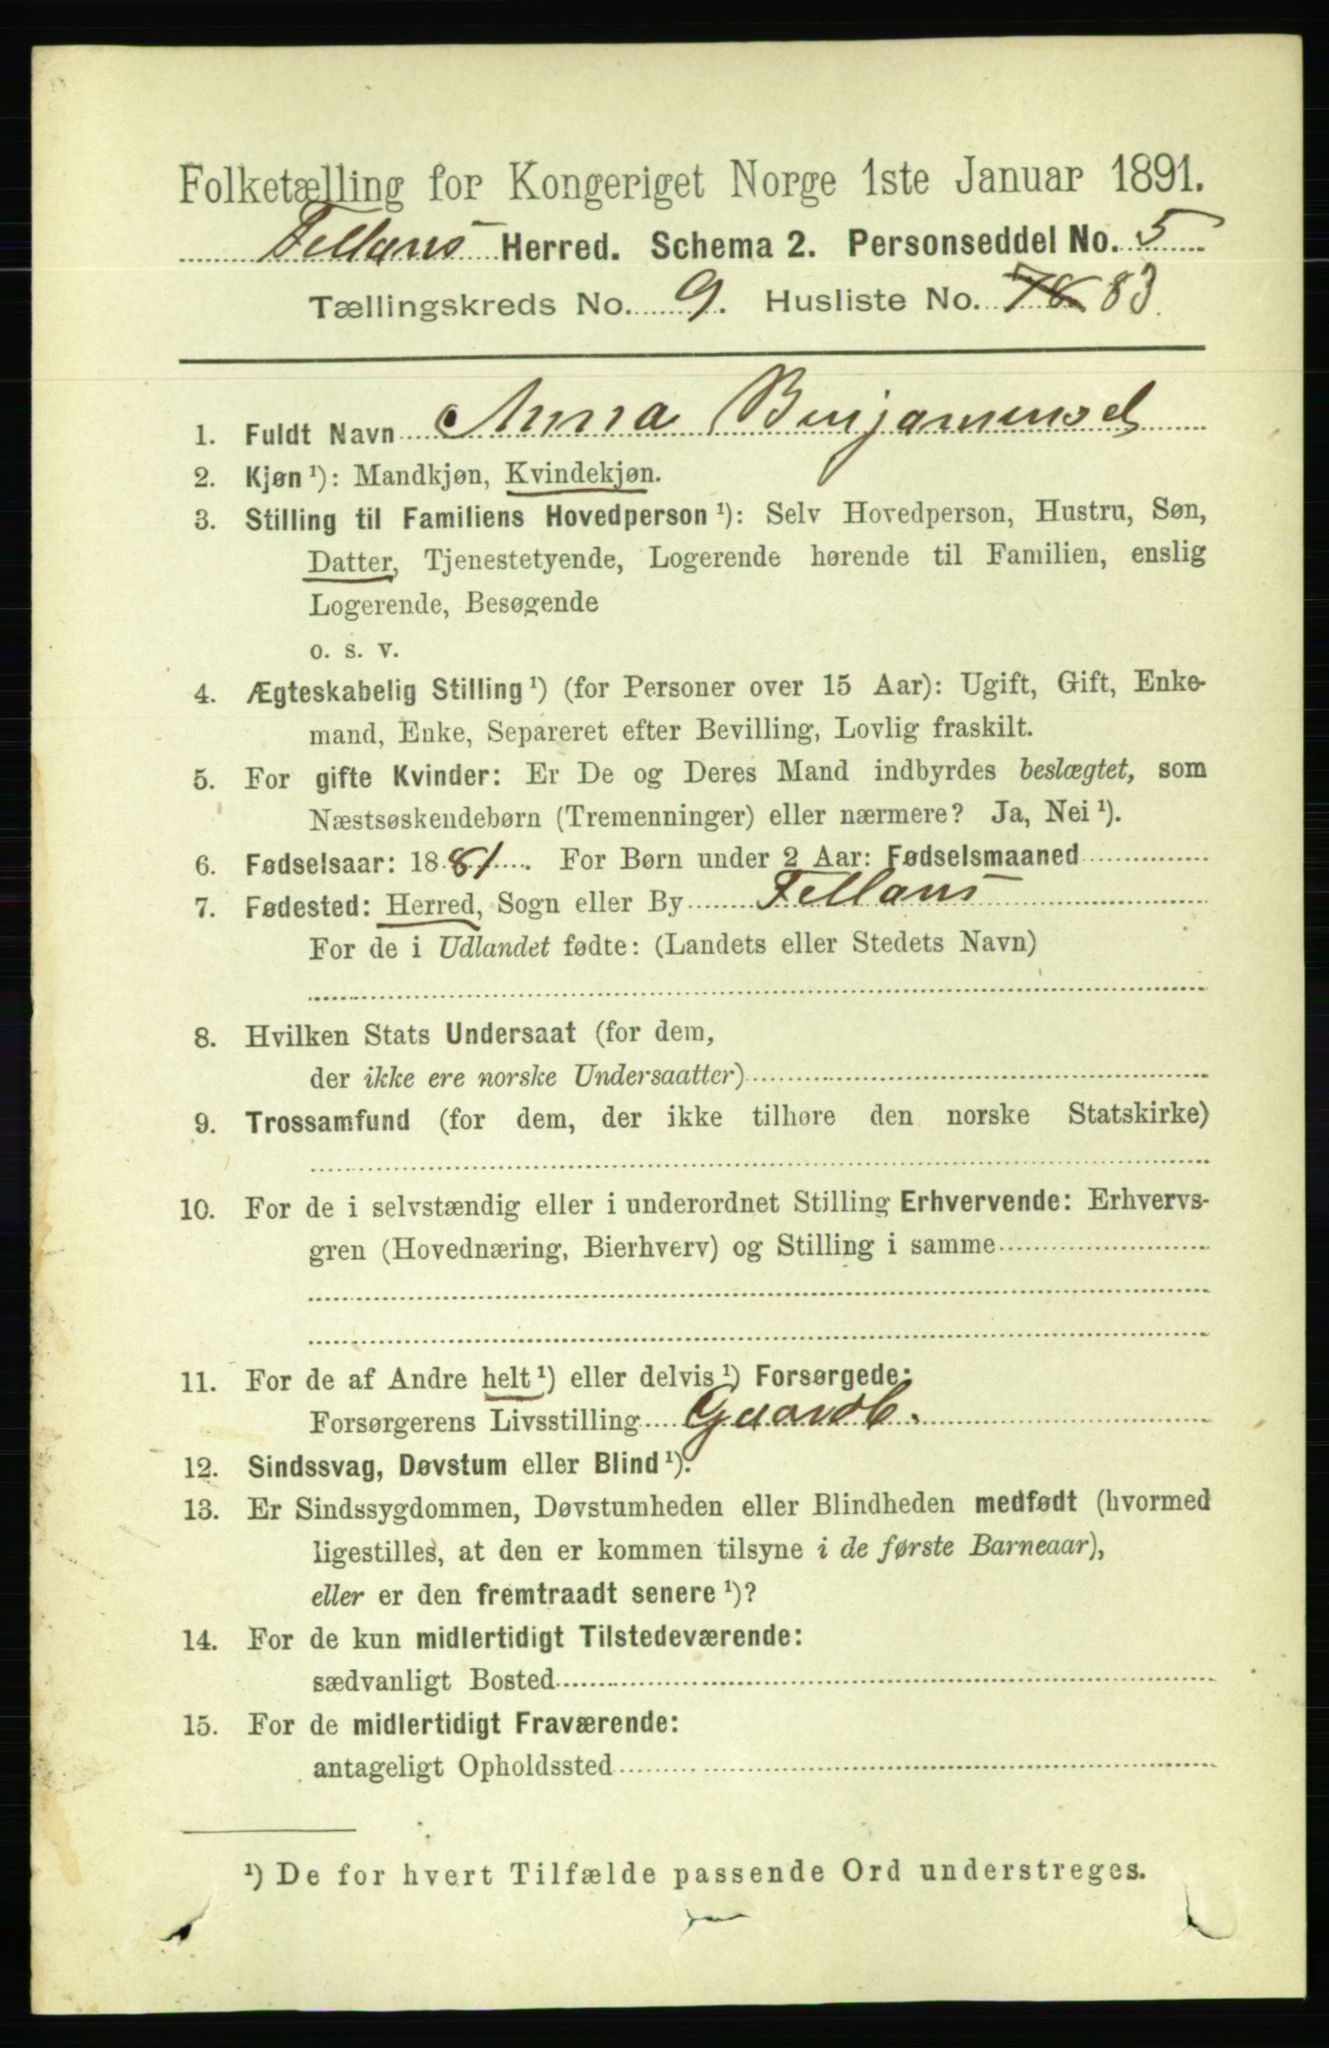 Folketælling for Kongeriget Norge 1ste Januar 1891.
Fillans Herred. Schema 2. Personseddel No. 5
Tællingskreds No. 9. Husliste No. 78 83
1. Fuldt Navn Anna Benjaminsd
2. Kjøn ¹): Mandkjøn, Kvindekjøn.
3. Stilling til Familiens Hovedperson ¹): Selv Hovedperson, Hustru, Søn,
Datter, Tjenestetyende, Logerende hørende til Familien, enslig
Logerende, Besøgende
o. s. v.
4. Ægteskabelig Stilling ¹) (for Personer over 15 Aar): Ugift, Gift, Enke-
mand, Enke, Separeret efter Bevilling, Lovlig fraskilt.
5. For gifte Kvinder: Er De og Deres Mand indbyrdes beslægtet, som
Næstsøskendebørn (Tremenninger) eller nærmere? Ja, Nei ¹).
6. Fødselsaar: 1881. For Børn under 2 Aar: Fødselsmaaned
7. Fødested: Herred, Sogn eller By Fillans
For de i Udlandet fødte: (Landets eller Stedets Navn)
8. Hvilken Stats Undersaat (for dem,
der ikke ere norske Undersaatter)
9. Trossamfund (for dem, der ikke tilhøre den norske Statskirke)
10. For de i selvstændig eller i underordnet Stilling Erhvervende: Erhvervs-
gren (Hovednæring, Bierhverv) og Stilling i samme
11. For de af Andre helt ¹) eller delvis ¹) Forsørgede:
Forsørgerens Livsstilling Gaardb.
12. Sindssvag, Døvstum eller Blind ¹).
13. Er Sindssygdommen, Døvstumheden eller Blindheden medfødt (hvormed
ligestilles, at den er kommen tilsyne i de første Barneaar),
eller er den fremtraadt senere ¹)?
14. For de kun midlertidigt Tilstedeværende:
sædvanligt Bosted
15. For de midlertidigt Fraværende:
antageligt Opholdssted
¹) De for hvert Tilfælde passende Ord understreges.